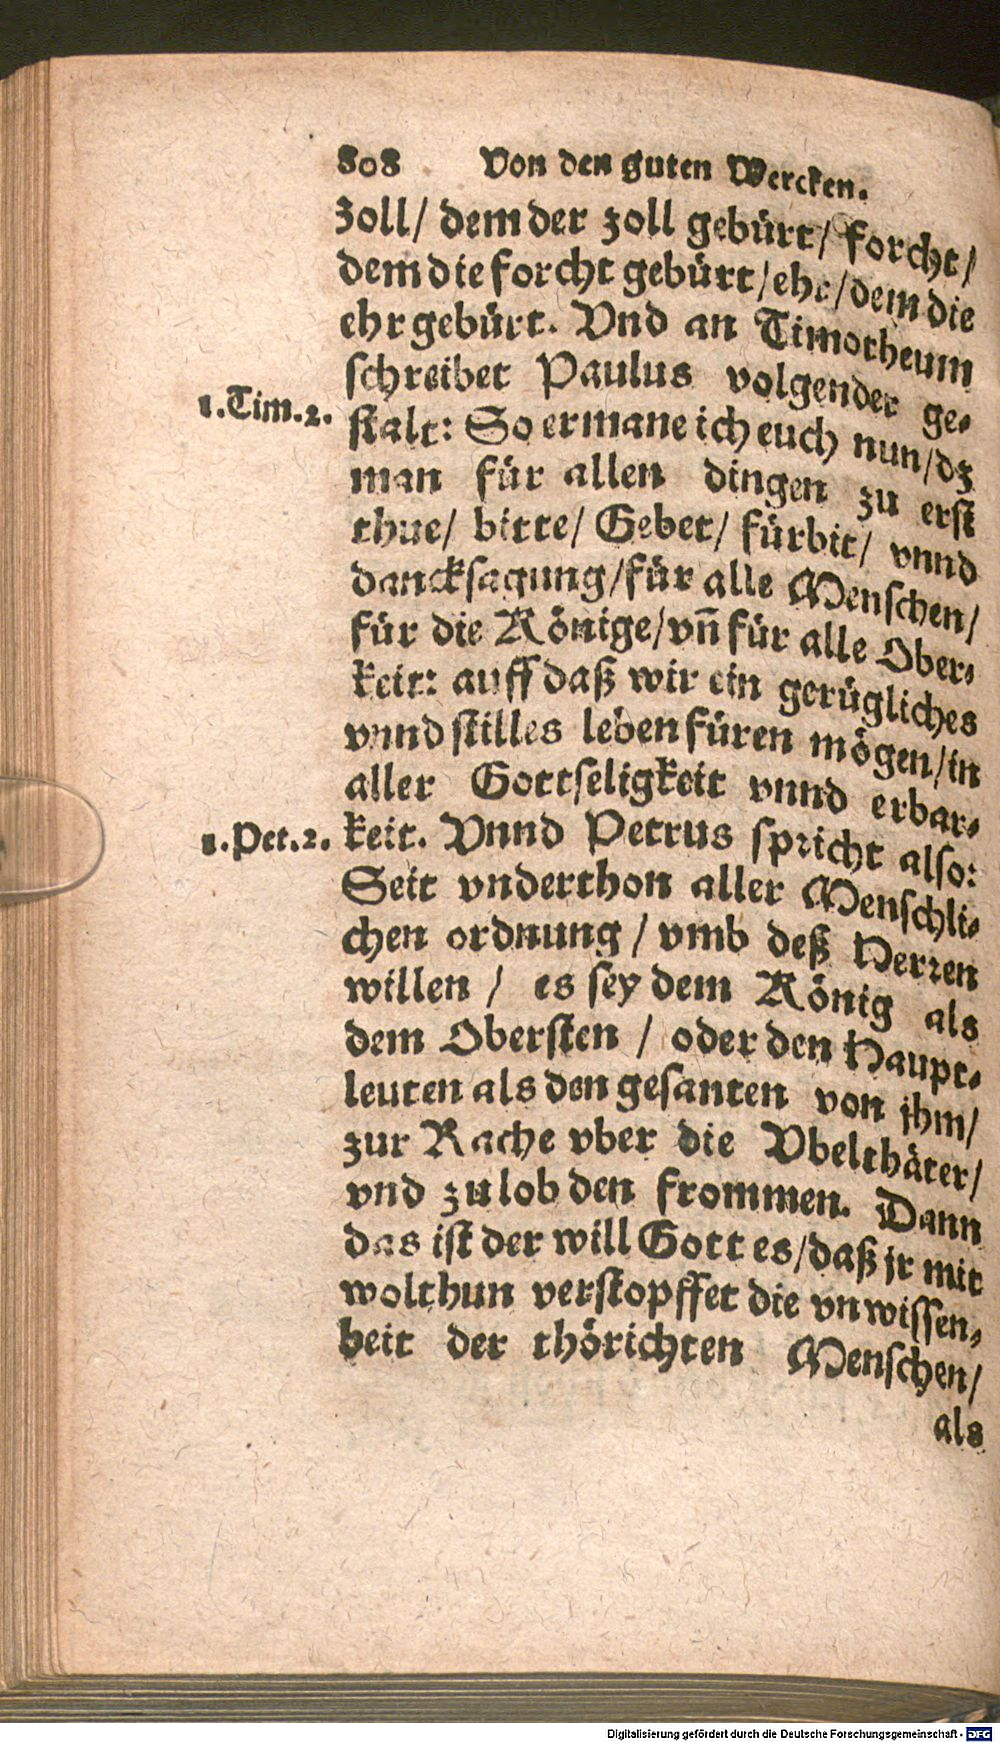 808 Von den guten Wercken.
zoll/ dem der zoll gebürt/ forcht/
dem die forcht gebürt/ehr/dem die
ehr gebürt. Vnd an Timotheum
schreibet Paulus volgender ge-
1.Tim.2.
stalt: So ermane ich euch nun/dz
man für allen dingen zu erst
thue/ bitte/ Gebet/ fürbit/ vnnd
dancksagung/für alle Menschen/
für die Könige/vn̄ für alle Ober-
keit: auff daß wir ein gerügliches
vnnd stilles leben füren mögen/in
aller Gottseligkeit vnnd erbar-
1.Pet.2.
keit. Vnnd Petrus spricht also:
Seit vnderthon aller Menschli-
chen ordnung / vmb deß Herren
willen / es sey dem König als
dem Obersten / oder den Haupt-
leuten als den gesanten von jhm/
zur Rache vber die Vbelthäter/
vnd zu lob den frommen. Dann
das ist der will Gottes/daß jr mit
wolthun verstopffet die vnwissen-
heit der thörichten Menschen/
als
Digitalisierung gefördert durch die Deutsche Forschungsgemeinschaft - DFG